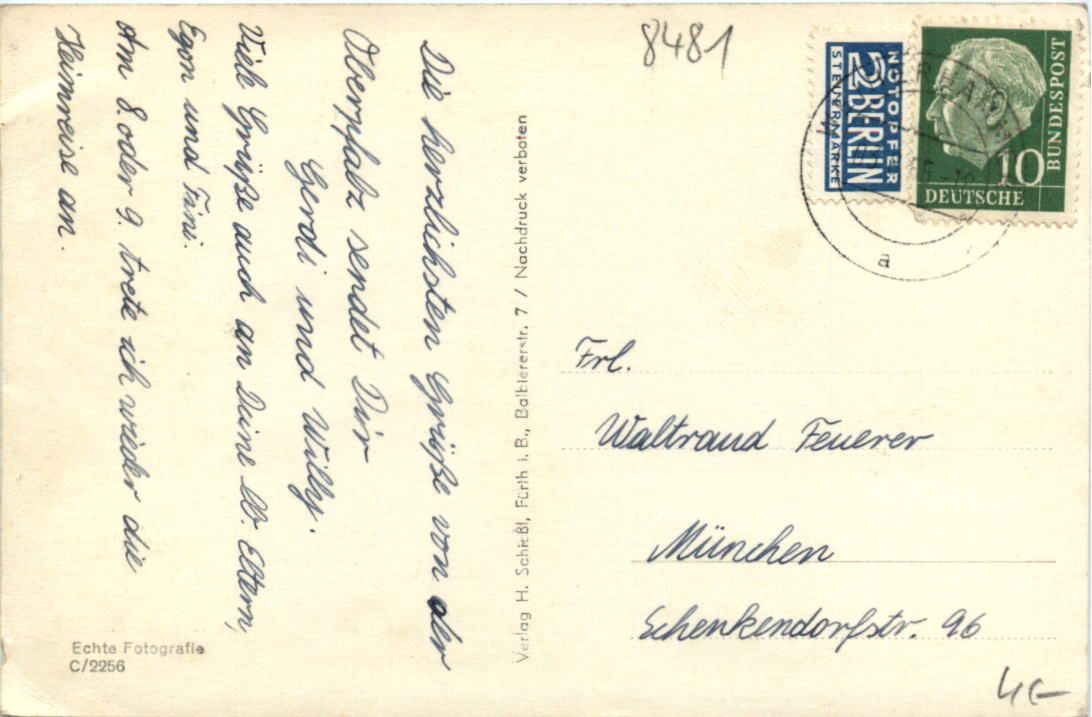 Die herzlichsten Grüße von der
Oberpfalz sendet Dir
Gerdi und Willy.
Viele Grüße auch an Deine lb. Eltern,
Egon und Fini.
Am 8. oder 9. trete ich wieder die
Heimreise an.
Echte Fotografie
C/2256
Verlag H. Schießl, Fürth i. B., Balbiererstr. 7 / Nachdruck verboten
8481
NOTOPFER
2 BERLIN
STEUERMARKE
DEUTSCHE
BUNDESPOST
10
a
Frl.
Waltraud Feuerer
München
Schenkendorfstr. 96
4,-